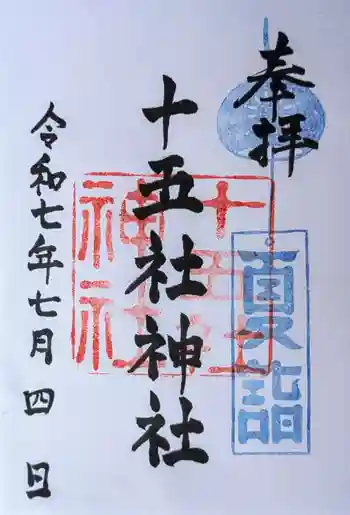 奉拝
夏詣
十五社神社
十五社神社
令和七年七月四日